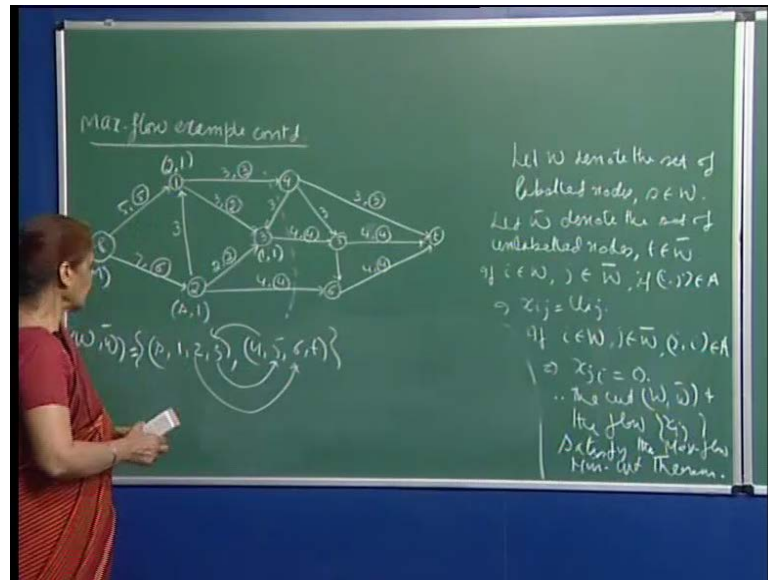 Max-flow example contd
(s, 1)
5, ⑤
①
3, ③
④
3, ③
3, ②
3
3
3
s
③
4, ④
5
4, ④
t
(1, 1)
7, ⑥
2, ②
②
4, ④
6
4, ④
(s, 1)
(W, W̄) = {(s, 1, 2, 3), (4, 5, 6, t)}
Let W denote the set of
labelled nodes, s ∈ W.
Let W̄ denote the set of
unlabelled nodes, t ∈ W̄
If i ∈ W, j ∈ W̄, if (i, j) ∈ A
⇒ xij = uij.
If i ∈ W, j ∈ W̄, (j, i) ∈ A
⇒ xji = 0.
∴ The cut (W, W̄) &
the flow {xij}
satisfy the Max-flow
Min-cut Theorem.